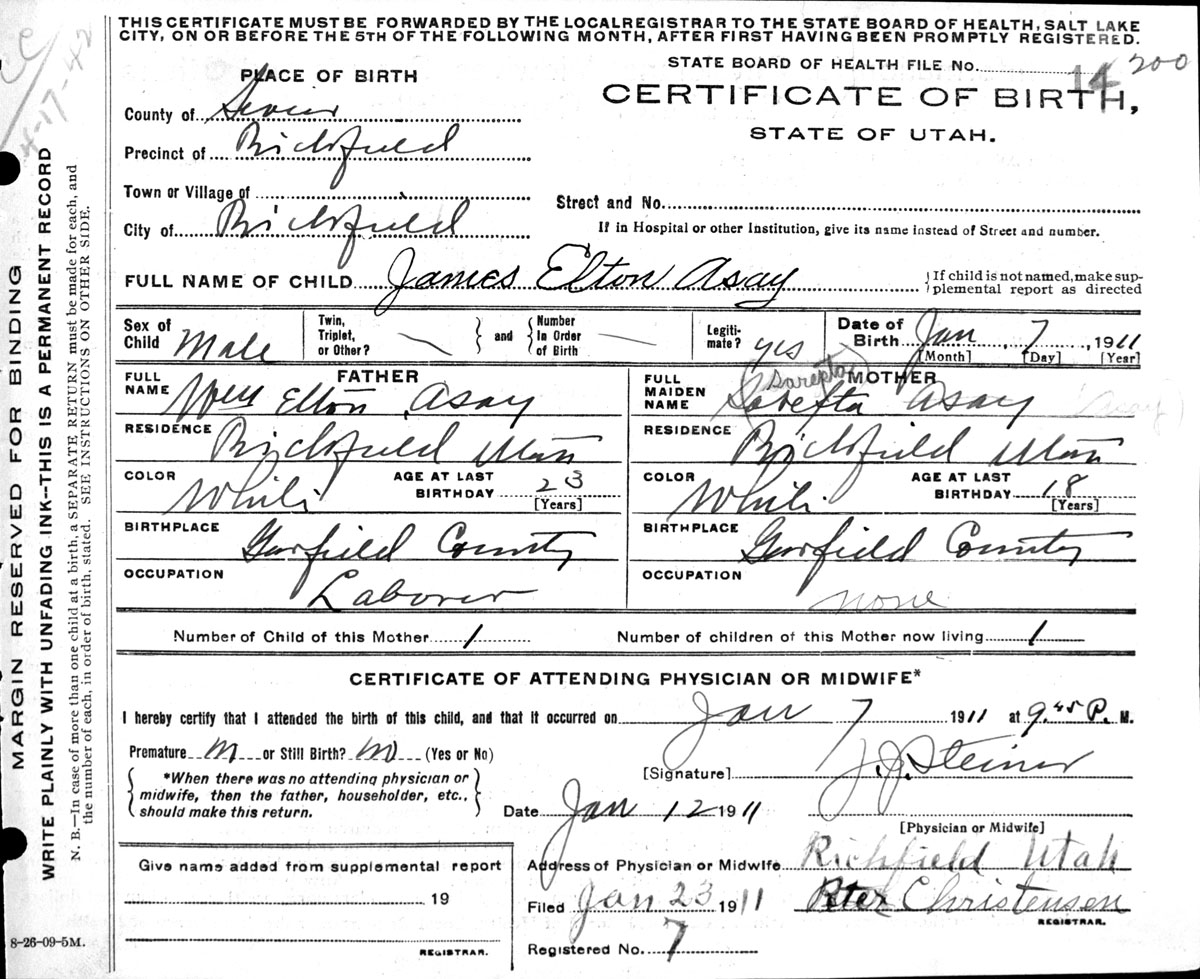 THIS CERTIFICATE MUST BE FORWARDED BY THE LOCAL REGISTRAR TO THE STATE BOARD OF HEALTH, SALT LAKE
CITY, ON OR BEFORE THE 5TH OF THE FOLLOWING MONTH, AFTER FIRST HAVING BEEN PROMPTLY REGISTERED.
4-17-42
STATE BOARD OF HEALTH FILE NO. 14 200
PLACE OF BIRTH
CERTIFICATE OF BIRTH,
STATE OF UTAH.
County of Sevier
Precinct of Richfield
Town or Village of
Street and No.
City of Richfield
If in Hospital or other Institution, give its name instead of Street and number.
FULL NAME OF CHILD James Elton Asay
If child is not named, make sup-
plemental report as directed
Sex of Child Male
Twin, Triplet, or Other? and Number In Order of Birth
Legiti-mate? yes
Date of Birth Jan 7, 1911
[Month] [Day] [Year]
FATHER
FULL NAME Wm Elton Asay
RESIDENCE Richfield Utah
COLOR White AGE AT LAST BIRTHDAY 23
[Years]
BIRTHPLACE Garfield County
OCCUPATION Laborer
MOTHER
Sarepta
FULL MAIDEN NAME Sarepta Asay (Asay)
RESIDENCE Richfield Utah
COLOR White AGE AT LAST BIRTHDAY 18
[Years]
BIRTHPLACE Garfield County
OCCUPATION none
Number of Child of this Mother 1 Number of children of this Mother now living 1
CERTIFICATE OF ATTENDING PHYSICIAN OR MIDWIFE*
I hereby certify that I attended the birth of this child, and that it occurred on Jan 7 1911 at 9.45 P. M.
Premature or Still Birth? (Yes or No)
*When there was no attending physician or
midwife, then the father, householder, etc.,
should make this return.
[Signature] J. J. Steiner
Date Jan 12 1911
[Physician or Midwife]
Give name added from supplemental report
19
REGISTRAR.
Address of Physician or Midwife Richfield Utah
Filed Jan 23 1911 Peter Christensen
REGISTRAR.
Registered No. 7
8-26-09-5M.
MARGIN RESERVED FOR BINDING
WRITE PLAINLY WITH UNFADING INK--THIS IS A PERMANENT RECORD
N. B.—In case of more than one child at a birth, a SEPARATE RETURN must be made for each, and
the number of each, in order of birth, stated. SEE INSTRUCTIONS ON OTHER SIDE.